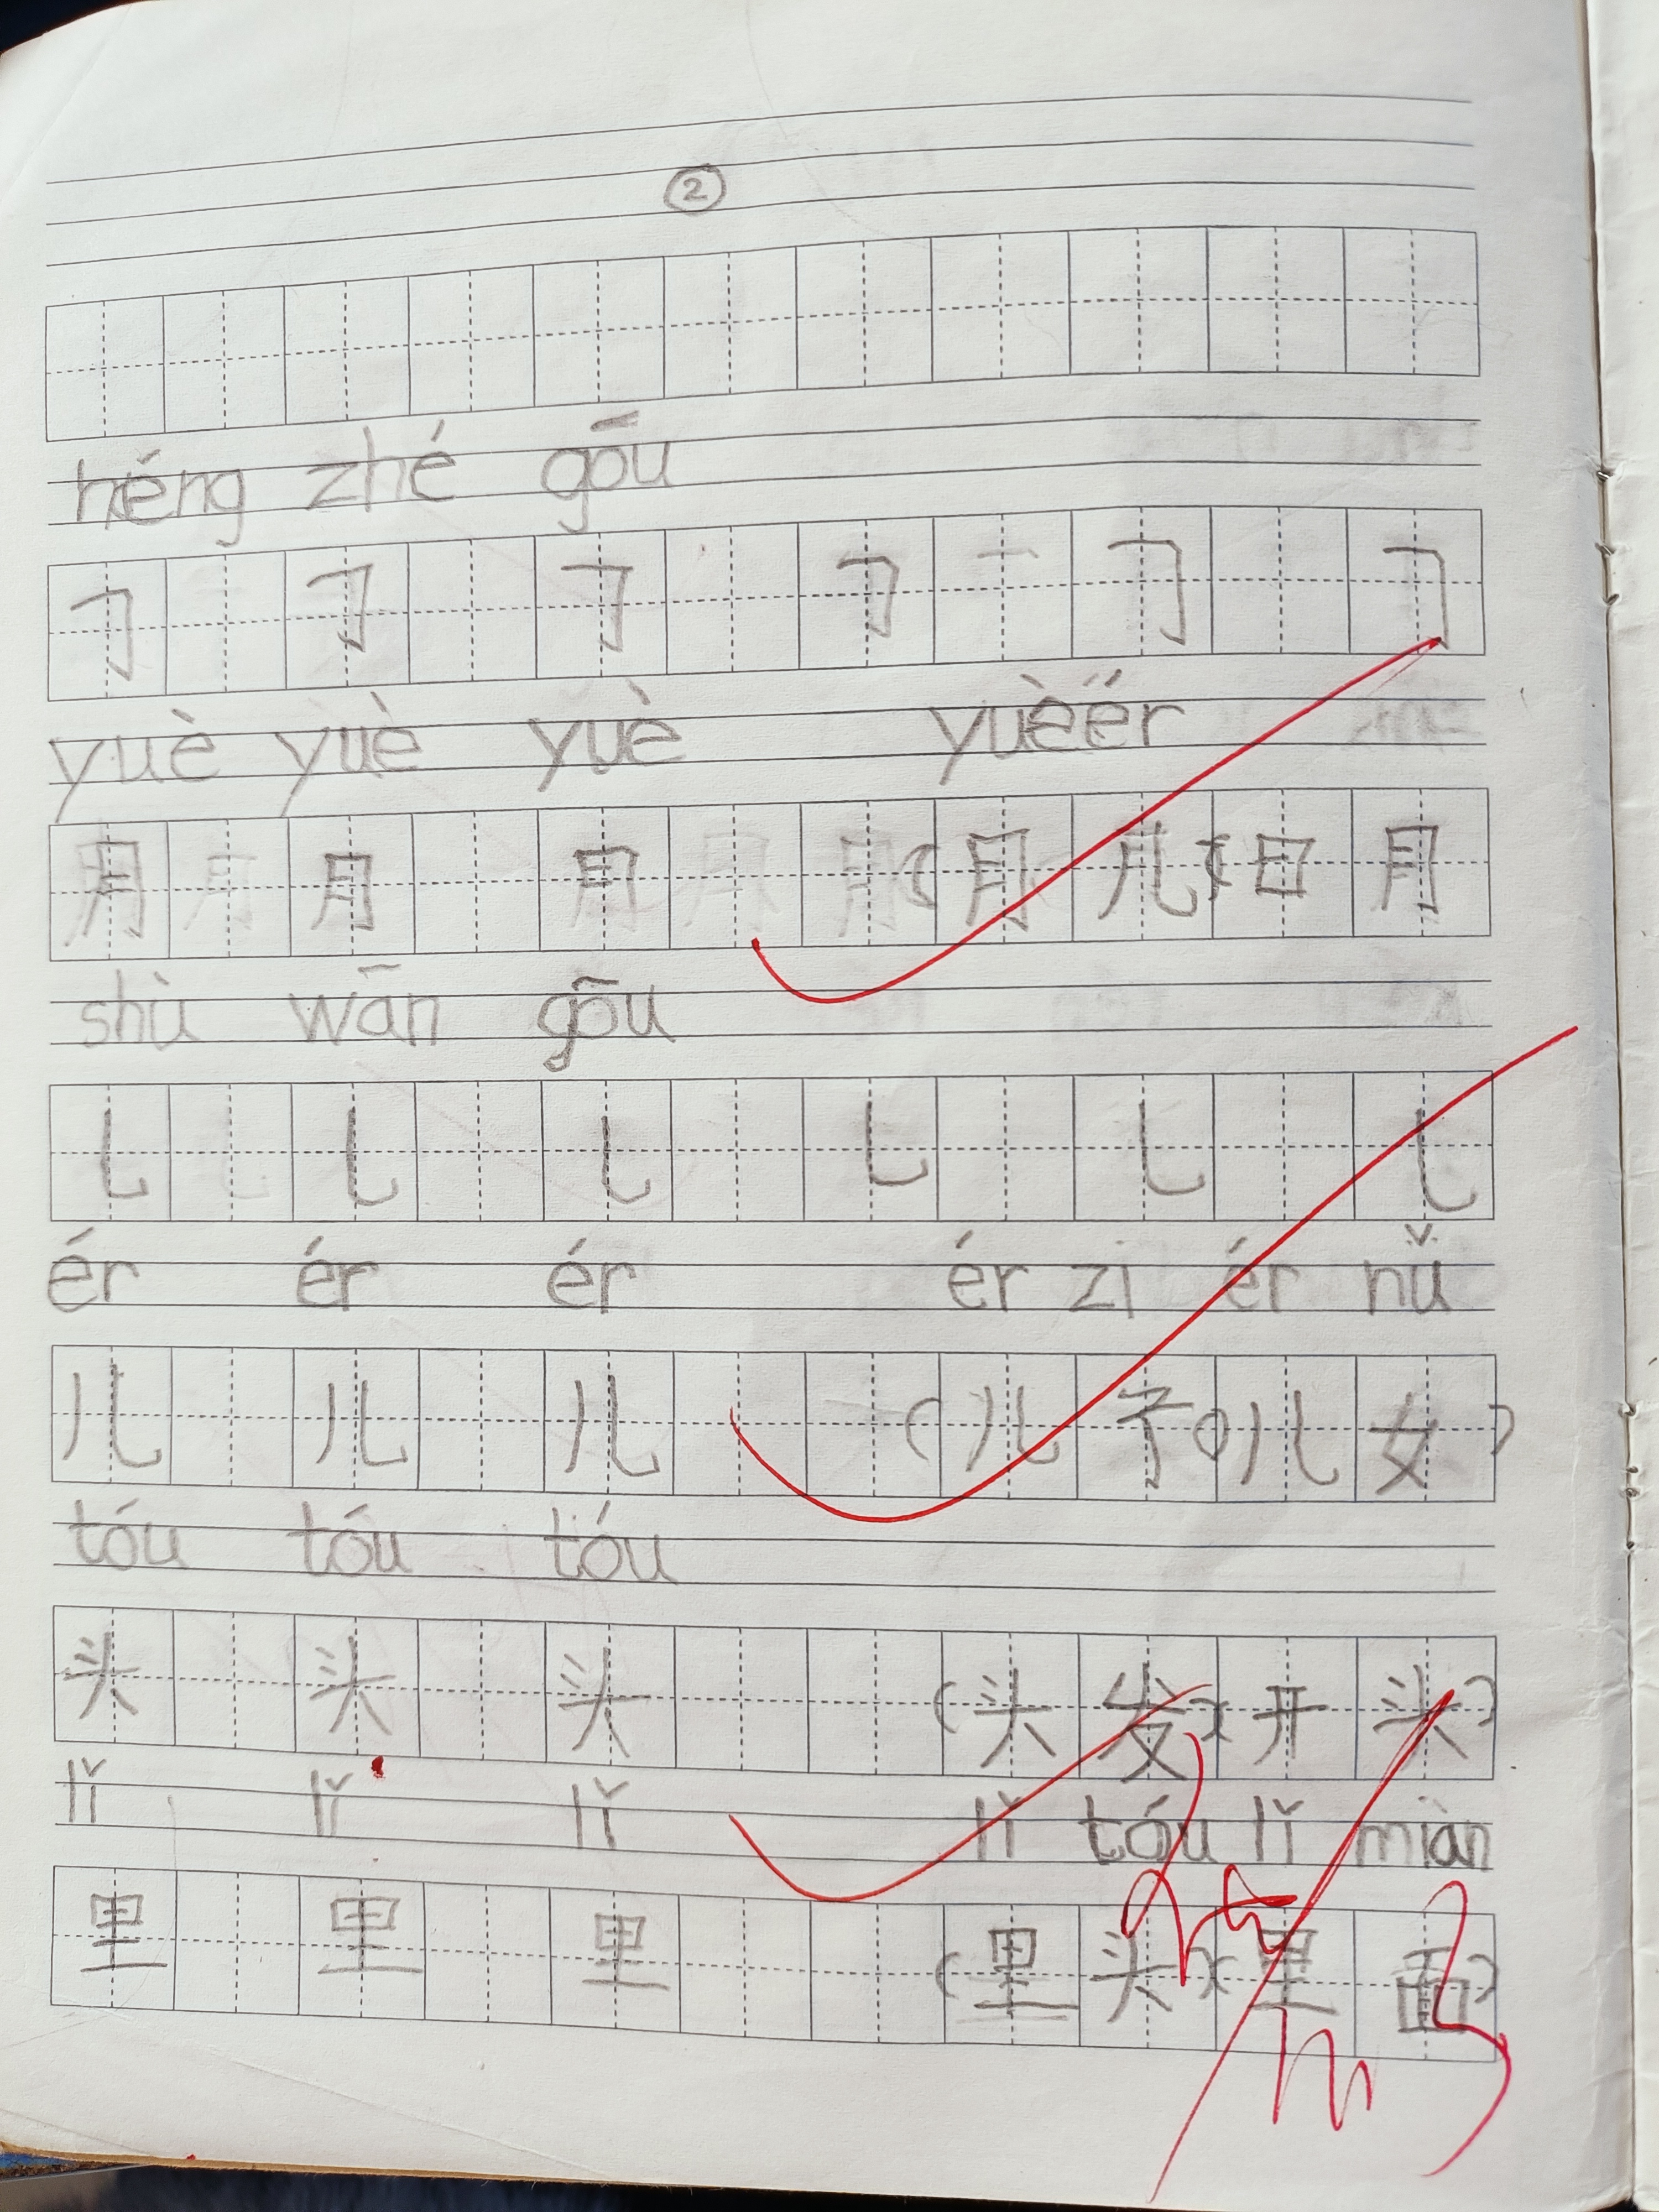 ②
héng zhé gōu
𠃌 𠃌 𠃌 𠃌 𠃌 𠃌
yuè yuè yuè yuè ér
月 月 月 (月儿)(日月
shù wān gōu
乚 乚 乚 乚 乚 乚
ér ér ér ér zi ér nǚ
儿 儿 儿 (儿子)(儿女)
tóu tóu tóu
头 头 头 (头发)(开头)
lǐ lǐ lǐ lǐ tóu lǐ miàn
里 里 里 (里头)(里面)